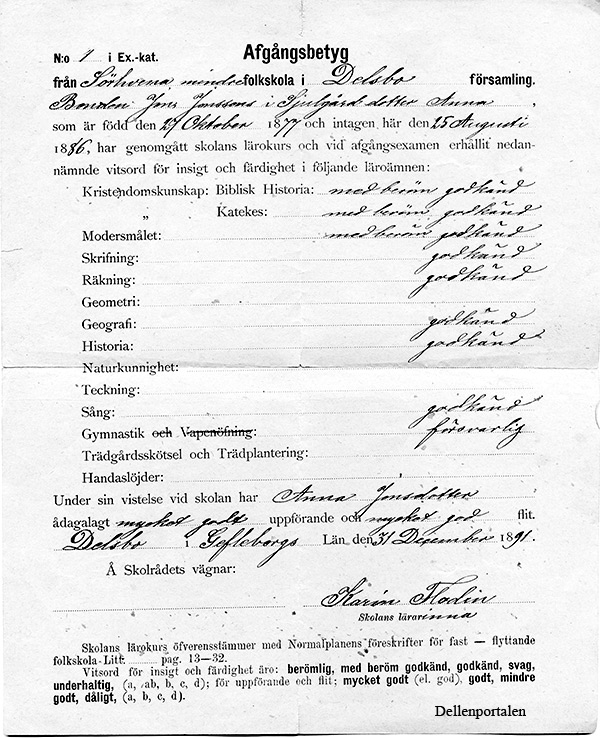 N:o 1 i Ex.-kat. Afgångsbetyg
från Sörhvena mindre folkskola i Delsbo församling.
Bonden Jons Jonssons i Sjulgård dotter Anna,
som är född den 27 Oktober 1877 och intagen här den 25 Augusti
1886, har genomgått skolans lärokurs och vid afgångsexamen erhållit nedan-
nämnde vitsord för insigt och färdighet i följande läroämnen:
Kristendomskunskap: Biblisk Historia: med beröm godkänd
„ Katekes: med beröm godkänd
Modersmålet: med beröm godkänd
Skrifning: godkänd
Räkning: godkänd
Geometri:
Geografi: godkänd
Historia: godkänd
Naturkunnighet:
Teckning:
Sång: godkänd
Gymnastik och Vapenöfning: försvarlig
Trädgårdsskötsel och Trädplantering:
Handaslöjder:
Under sin vistelse vid skolan har Anna Jonsdotter
ådagalagt mycket godt uppförande och mycket god flit.
Delsbo i Gefleborgs Län den 31 December 1891.
Å Skolrådets vägnar:
Karin Flodin
Skolans lärarinna
Skolans lärokurs öfverensstämmer med Normalplanens föreskrifter för fast — flyttande
folkskola-Litt. pag. 13—32.
Vitsord för insigt och färdighet äro: berömlig, med beröm godkänd, godkänd, svag,
underhaltig, (a, ab, b, c, d); för uppförande och flit: mycket godt (el. god), godt, mindre
godt, dåligt, (a, b, c, d).
Dellenportalen